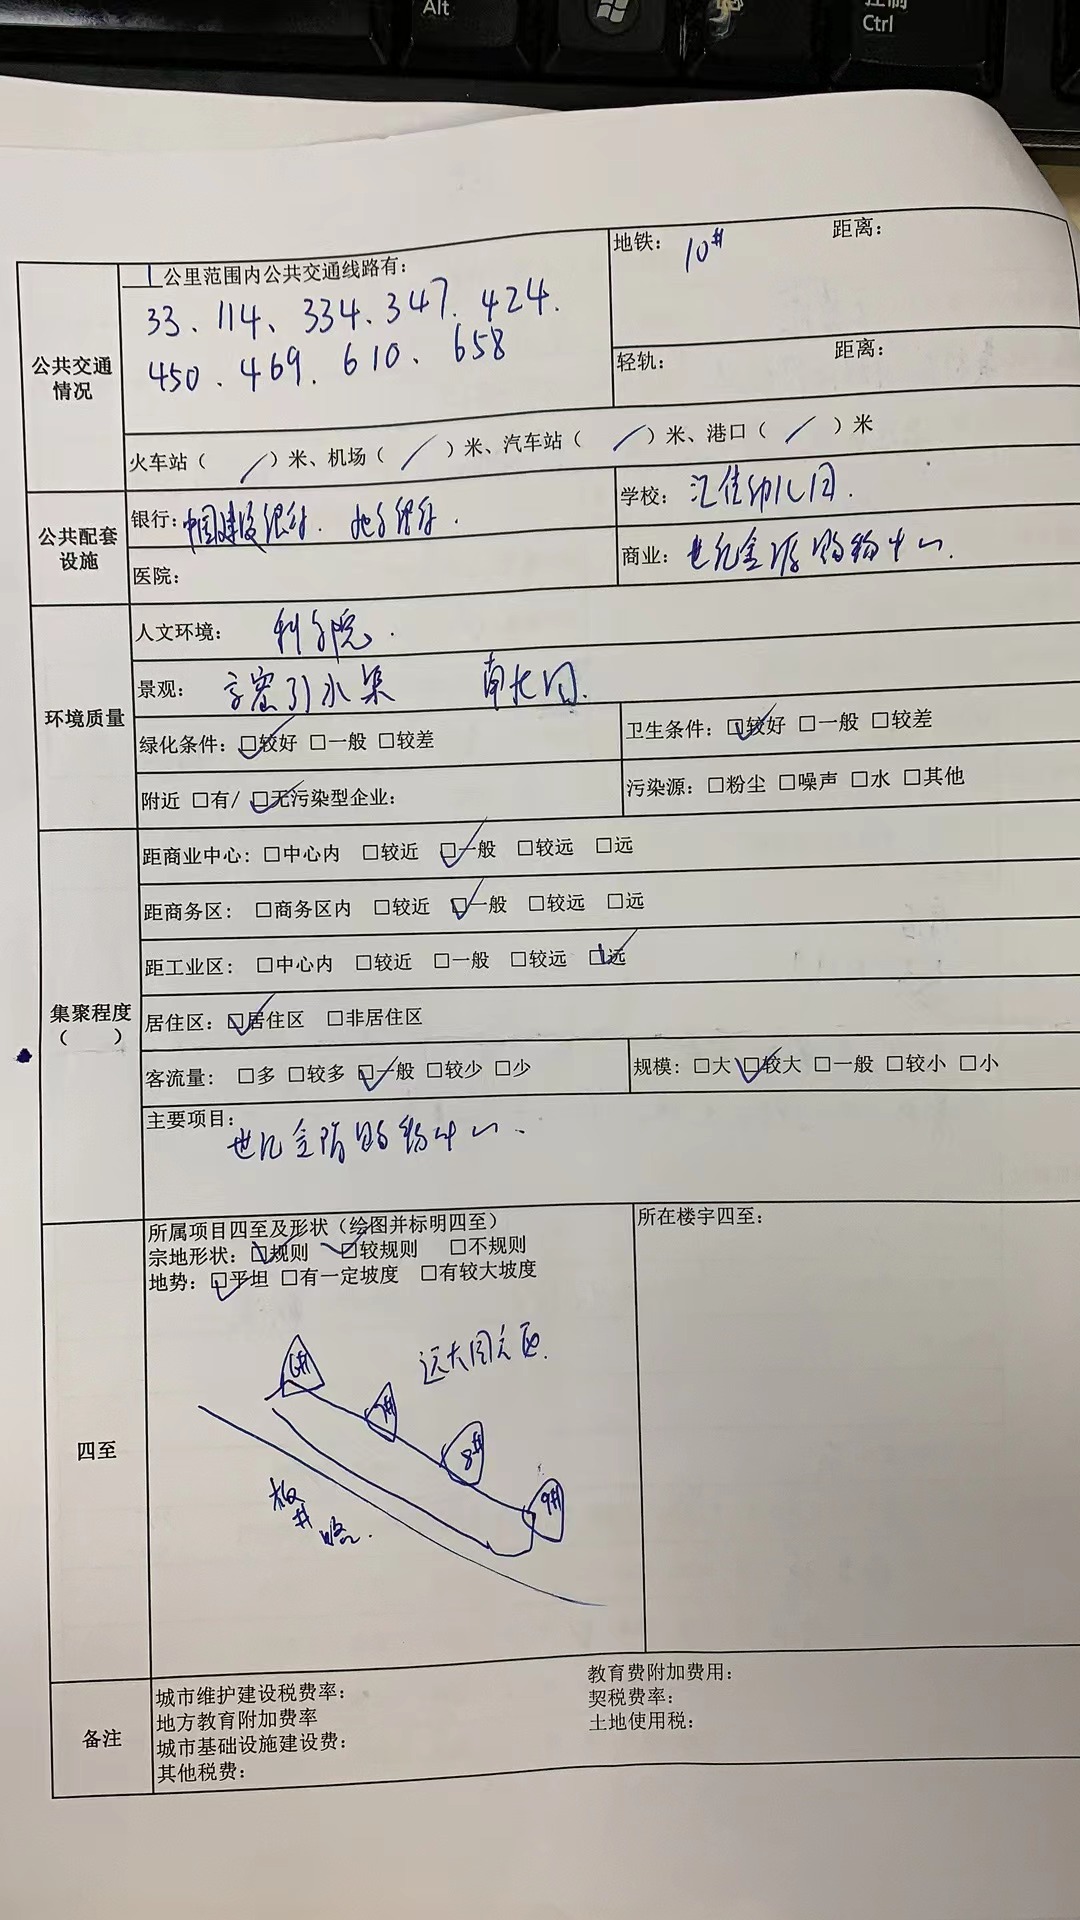 Alt
控制
Ctrl
1 公里范围内公共交通线路有:
33、114、334、347、424、
450、469、610、658
地铁: 10# 距离:
轻轨: 距离:
公共交通
情况
火车站( / )米、机场( / )米、汽车站( / )米、港口( / )米
公共配套
设施
银行: 中国建设银行. 北京银行.
学校: 汇佳幼儿园.
医院:
商业: 世纪金源购物中心.
环境质量
人文环境: 科学院.
景观: 京密引水渠 南长河.
绿化条件: ☑较好 □一般 □较差
卫生条件: ☑较好 □一般 □较差
附近 □有/ ☑无污染型企业:
污染源: □粉尘 □噪声 □水 □其他
集聚程度
( )
距商业中心: □中心内 □较近 ☑一般 □较远 □远
距商务区: □商务区内 □较近 ☑一般 □较远 □远
距工业区: □中心内 □较近 □一般 □较远 ☑远
居住区: ☑居住区 □非居住区
客流量: □多 □较多 ☑一般 □较少 □少
规模: □大 ☑较大 □一般 □较小 □小
主要项目:
世纪金源购物中心.
四至
所属项目四至及形状(绘图并标明四至)
宗地形状: ☑规则 ☑较规则 □不规则
地势: ☑平坦 □有一定坡度 □有较大坡度
所在楼宇四至:
6#
7#
8#
9#
远大园六区.
板井路.
备注
城市维护建设税费率:
地方教育附加费率
城市基础设施建设费:
其他税费:
教育费附加费用:
契税费率:
土地使用税: